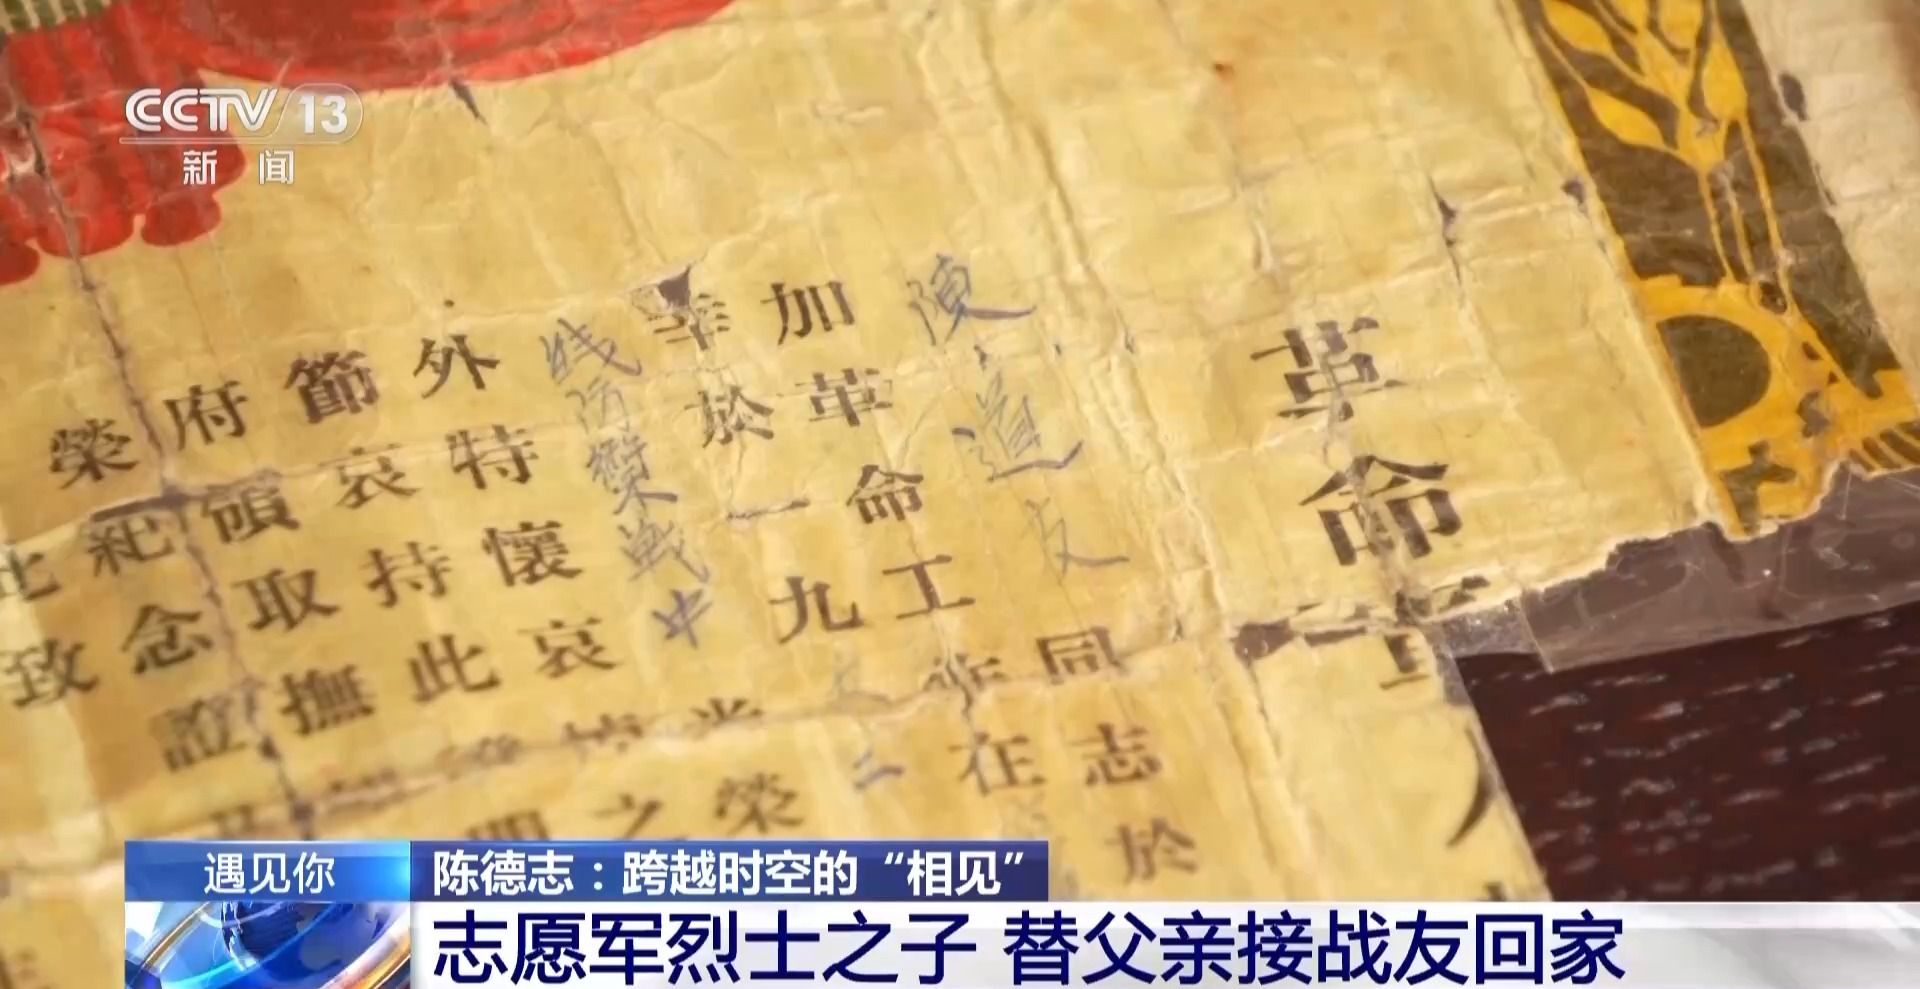 CCTV 13
新闻
革命
陳道友同志於
加革命工作在
於一九五二
线防禦战中光榮
外特懷哀
節哀持此
府領取撫
榮紀念證
此致
遇见你
陈德志：跨越时空的“相见”
志愿军烈士之子 替父亲接战友回家